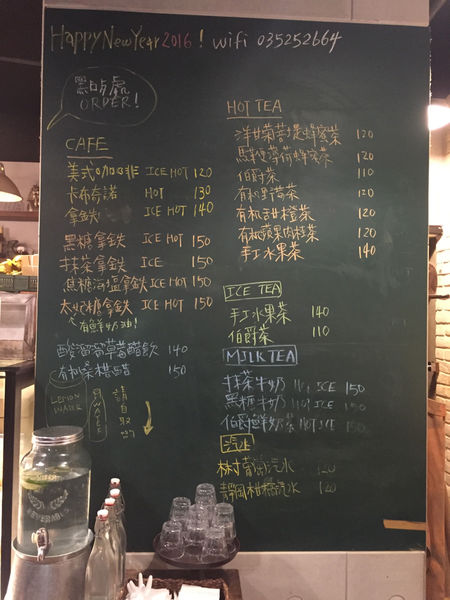 Happy New Year 2016! wifi 035252664
點的處
ORDER!
CAFE
美式咖啡 ICE HOT 120
卡布奇諾 HOT 130
拿鐵 ICE HOT 140
黑糖拿鐵 ICE HOT 150
抹茶拿鐵 ICE 150
焦糖海塩拿鐵 ICE HOT 150
太妃糖拿鐵 ICE HOT 150
有鮮奶油!
酸溜溜草莓醋飲 140
有机桑椹醋 150
LEMON
WATER
WATER
請自取
HOT TEA
洋甘菊菩提蜂蜜茶 120
馬鞭草薄荷蜂蜜茶 120
伯爵茶 110
有机野莓茶 120
有机甜橙茶 120
有机蘋果肉桂茶 120
手工水果茶 140
ICE TEA
手工水果茶 140
伯爵茶 110
MILK TEA
抹茶牛奶 HOT ICE 150
黑糖牛奶 HOT ICE 150
伯爵鮮奶茶 HOT ICE 150
汽水
林村葡萄汽水 120
靜岡柑橘汽水 120